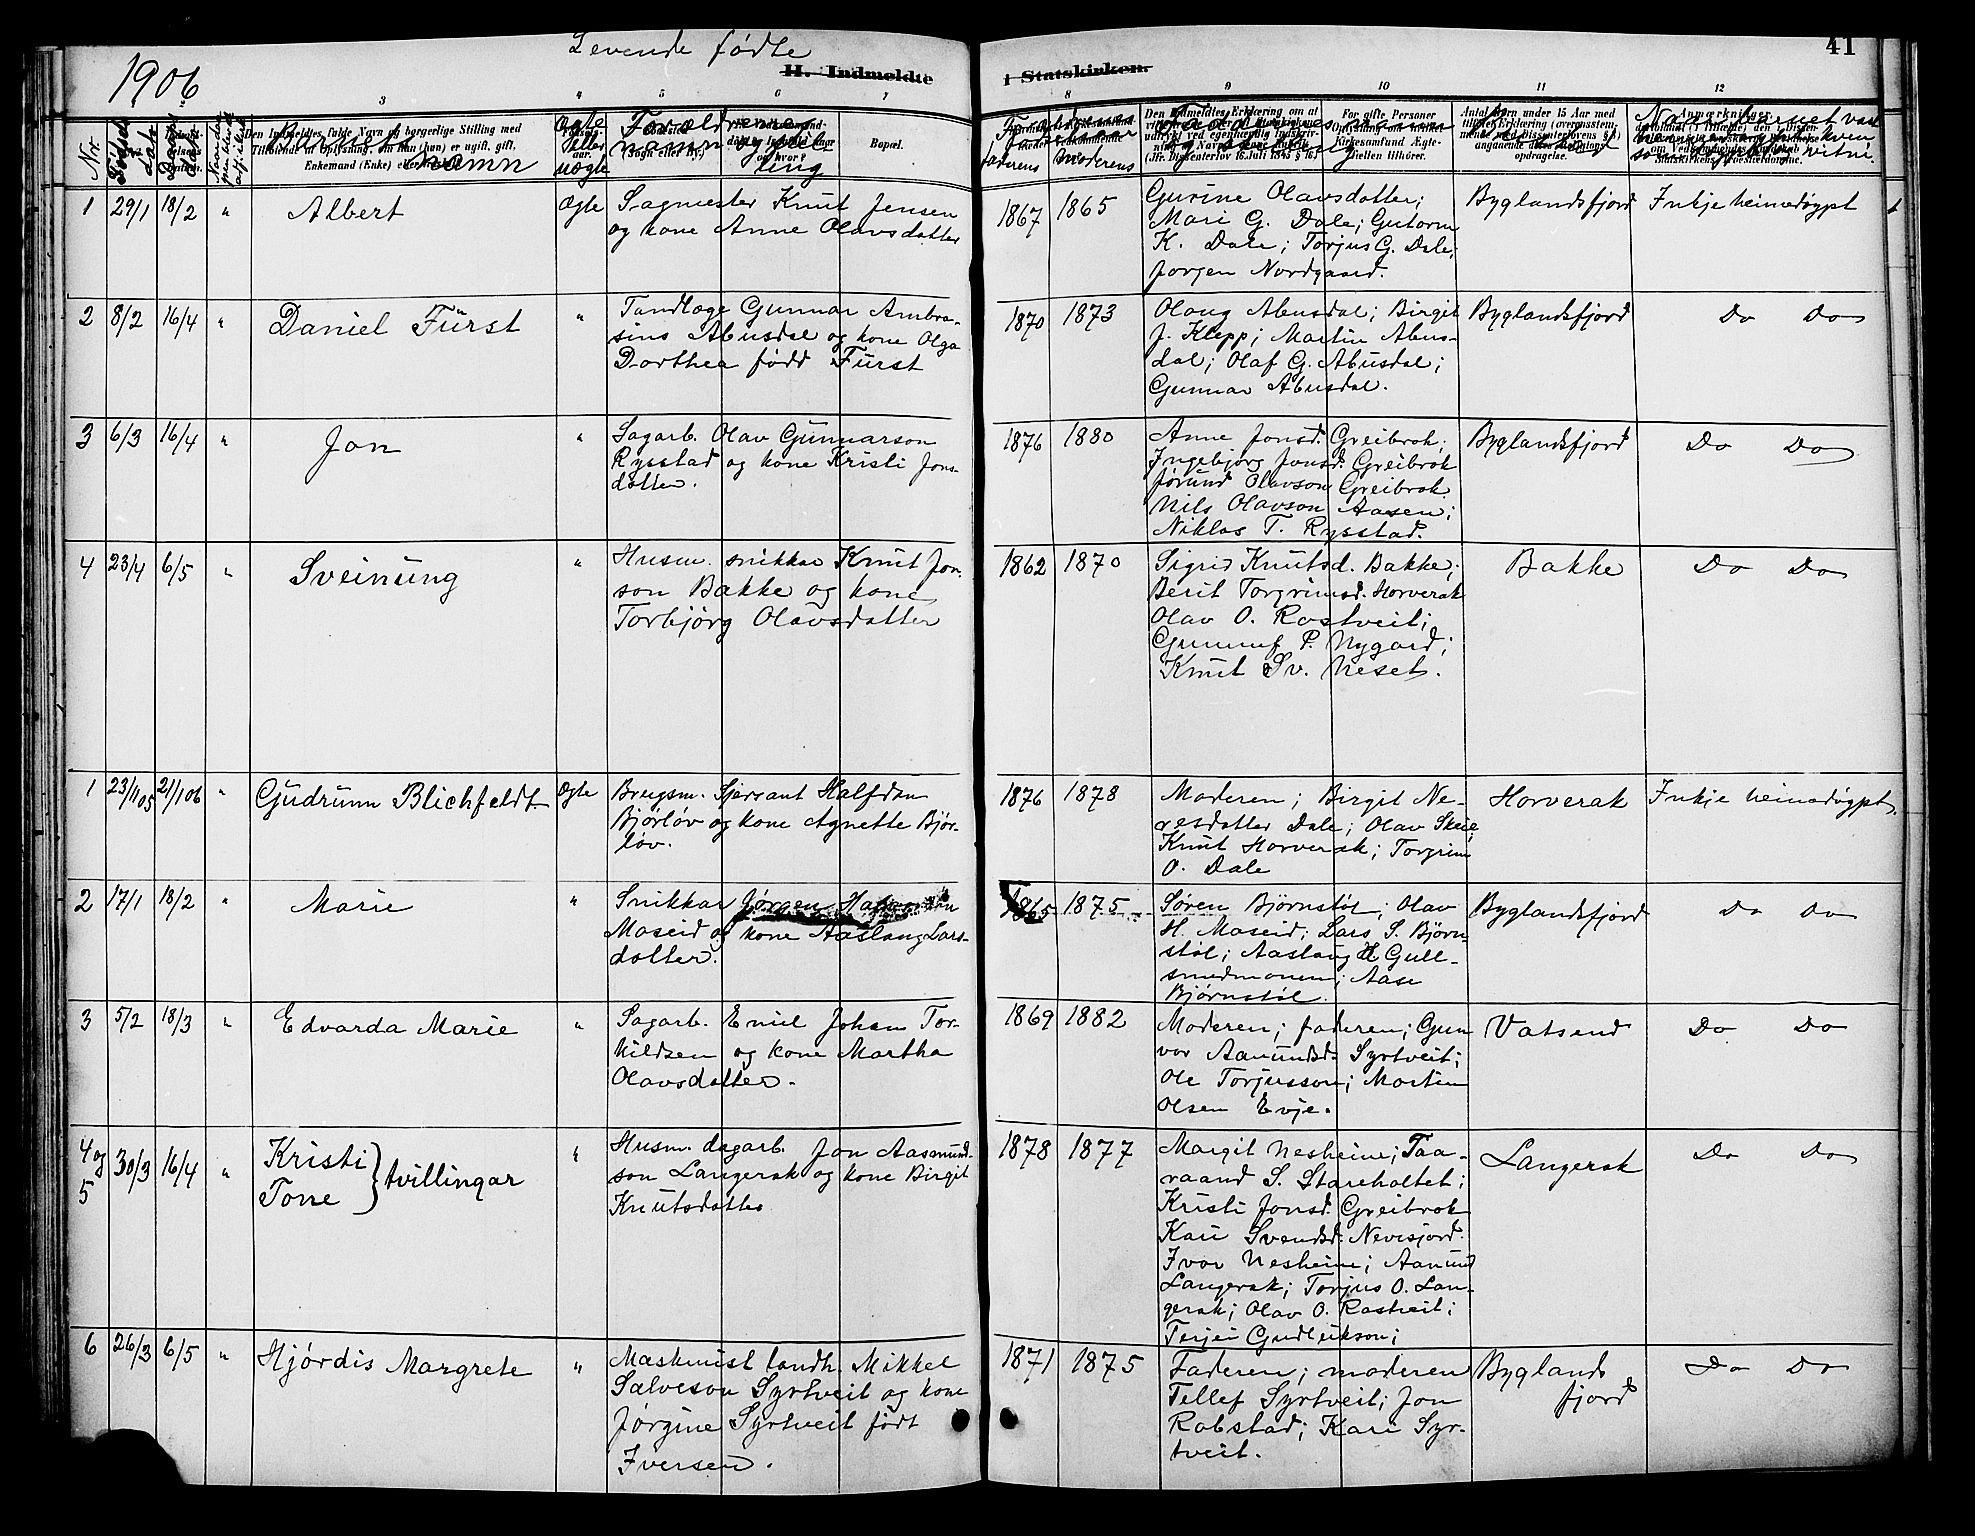 Levende fødte
1906
H. Indmeldte i Statskirken.
41
3 4 5 6 7 8 9 10 11 12
Nr.
Bopæl.
1 29/1 18/2 " Albert Ægte Sagmester Knut Jensen
og kone Anne Olavsdatter
1867 1865 Gurine Olavsdotter;
Mari G. Dale; Gutorm
K. Dale; Torjus G. Dale;
Jorgen Nordgaard.
Byglandsfjord Inkje heimedøypt
2 8/2 16/4 " Daniel Fürst " Tandlæge Gunnar Ambro-
sius Abusdal og kone Olga
Dorthea født Fürst
1870 1873 Olaug Abusdal; Birgit
J. Klepp; Martin Abus-
dal; Olaf G. Abusdal;
Gunnar Abusdal.
Byglandsfjord Do Do
3 6/3 16/4 " Jon " Sagarb. Olav Gunnarson
Rysstad og kone Kristi Jons-
datter.
1876 1880 Anne Jonsd. Greibrok;
Ingebjorg Jonsd. Greibrok
Jørund Olavson Greibrok
Nils Olavson Aasen;
Niklas T. Rysstad.
Byglandsfjord Do Do
4 23/4 6/5 " Sveinung " Husm. snikkar Knut Jon-
son Bakke og kone
Torbjörg Olavsdatter
1862 1870 Sigrid Knutsd. Bakke;
Berit Torgrimsd. Horverak
Olav O. Rostveit;
Gunnuf P. Nygard;
Knut Sv. Neset.
Bakke Do Do
1 23/11 05 21/1 06 " Gudrunn Blichfeldt Ægte Brugsm. Sjersant Halfdan
Bjorløv og kone Agnette Bjør-
løv.
1876 1878 Moderen; Birgit Ne-
resdatter Dale; Olav Skeie
Knut Horverak; Torgrim
O. Dale
Horverak Inkje heimedøypt.
2 17/1 18/2 " Marie " Snikkar Jørgen
Moseid og kone Aaslaug Lars-
dotter.
1865 1875 Søren Bjørnstøl; Olav
H. Moseid; Lars S. Bjørn-
støl; Aaslaug H Gull-
smedmonem; Aase
Bjørnstøl
Byglandsfjord Do Do
3 5/2 18/3 " Edvarda Marie " Sagarb. Emil Johan Tor-
kildsen og kone Martha
Olavsdatter.
1869 1882 Moderen; faderen; Gun
vor Aanundsd. Syrtveit;
Ole Torjusson; Morten
Olsen Evje.
Vatsend Do Do
4 og 5 30/3 16/4 " Kristi
Tone } tvillingar " Husm. dagarb. Jon Aasmund-
son Langerak og kone Birgit
Knutsdatter
1878 1877 Margit Nesheim; Taa-
raand S. Stareholtet;
Kristi Jonsd. Greibrok
Kari Svendsd. Nevisjord.
Ivar Nesheim; Aanund
Langerak; Torjus O. Lan-
gerak; Olav O. Rostveit;
Terjei Gudleikson;
Langerak Do Do
6 26/3 6/5 " Hjórdis Margrete " Maskinist landh. Mikkel
Salveson Syrtveit og kone
Jørgine Syrtveit født
Iversen.
1871 1875 Faderen; moderen
Tellef Syrtveit; Jon
Robstad; Kari Syr-
tveit.
Byglands
fjord Do Do